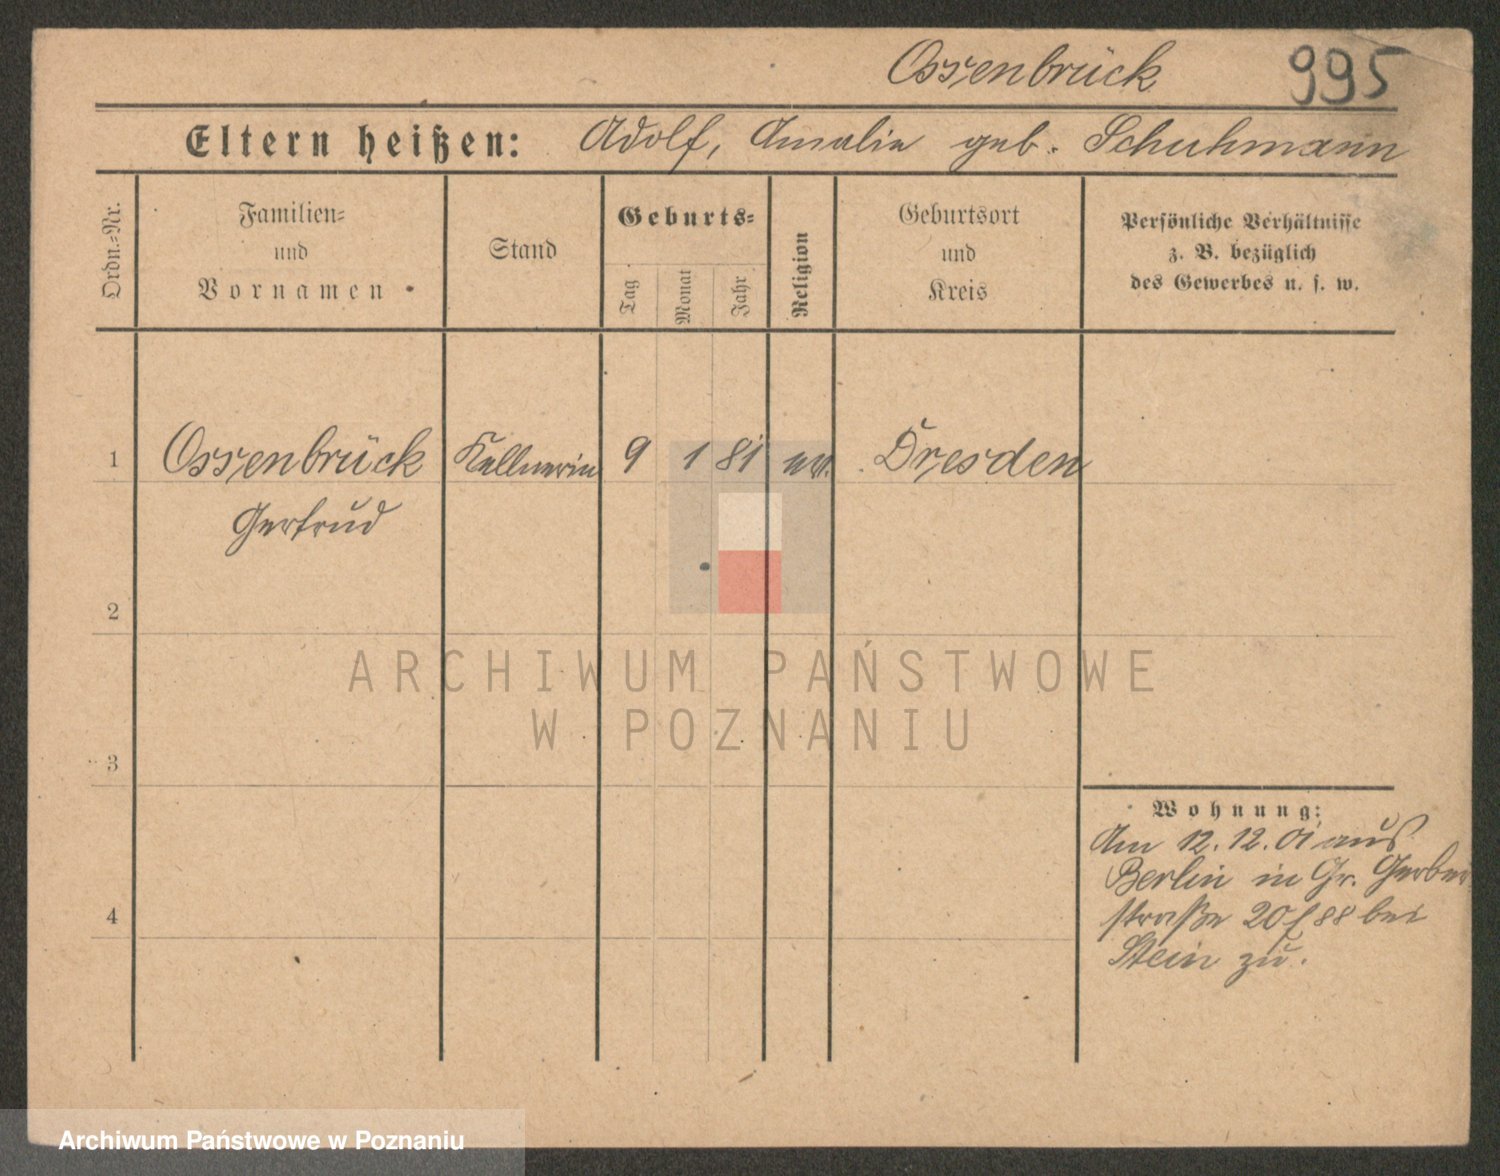 Ossenbrück 995
Eltern heißen: Adolf, Amalie geb. Schuhmann
Ordn.=Nr.
Familien=
und
Vornamen
Stand
Geburts=
Tag
Monat
Jahr
Religion
Geburtsort
und
Kreis
Persönliche Verhältnisse
z. B. bezüglich
des Gewerbes u. s. w.
1 Ossenbrück Kellnerin 9 1 81 ev. Dresden
Gertrud
2
3
4
Wohnung:
Am 12.12.01 aus
Berlin in Gr. Gerber
straße 20 88 bei
Stein zu.
ARCHIWUM PAŃSTWOWE
W POZNANIU
Archiwum Państwowe w Poznaniu